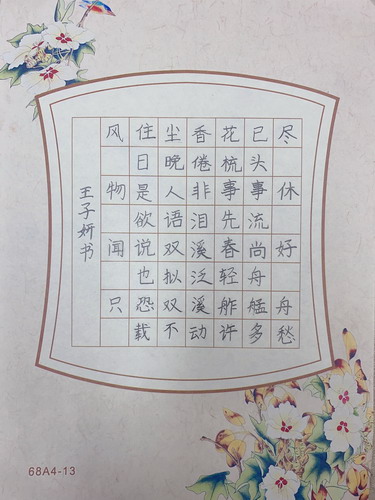 风住尘香花已尽
日晚倦梳头
物是人非事事休
欲语泪先流
闻说双溪春尚好
也拟泛轻舟
只恐双溪舴艋舟
载不动许多愁
王子妍书
68A4-13